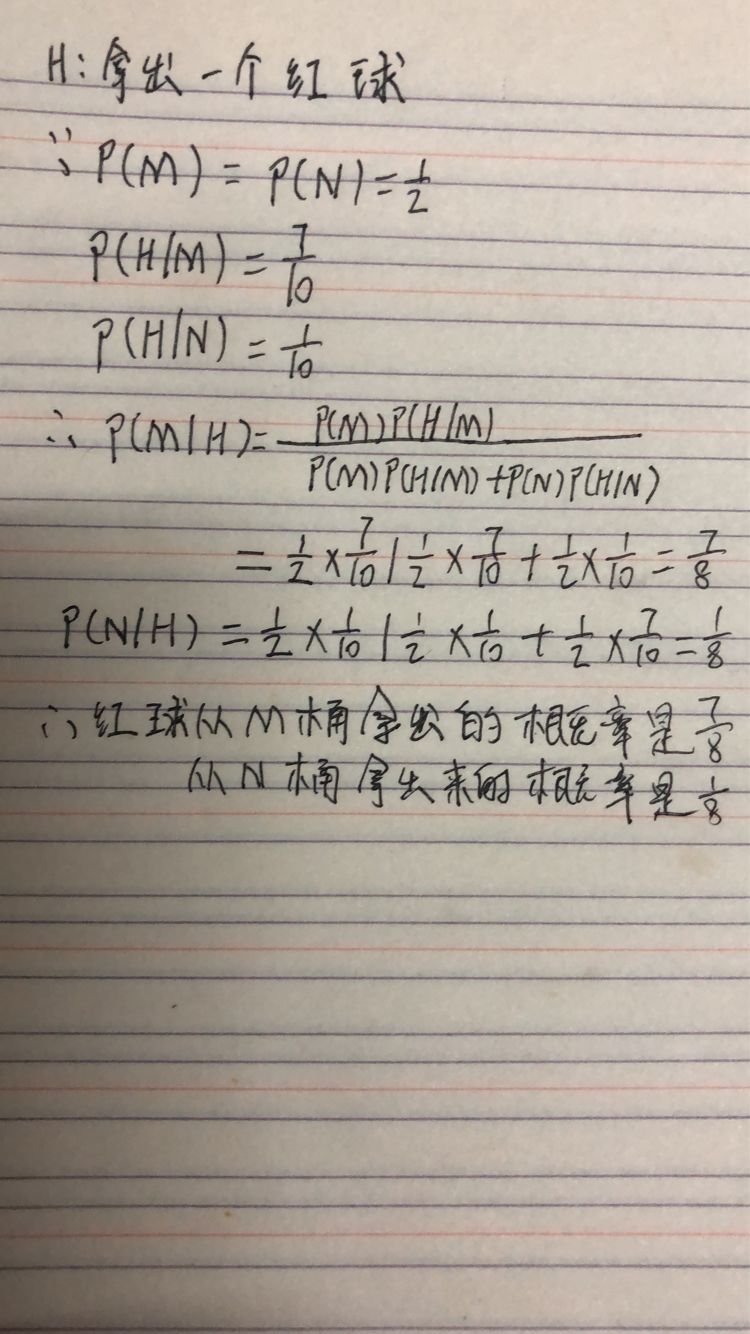 H: 拿出一个红球
∵ P(M) = P(N) = 1/2
P(H/M) = 7/10
P(H/N) = 1/10
∴ P(M/H) = P(M)P(H/M) / P(M)P(H/M)+P(N)P(H/N)
= 1/2 × 7/10 / 1/2 × 7/10 + 1/2 × 1/10 = 7/8
P(N/H) = 1/2 × 1/10 / 1/2 × 1/10 + 1/2 × 7/10 = 1/8
∴ 红球从M桶拿出的概率是 7/8
从N桶拿出来的概率是 1/8